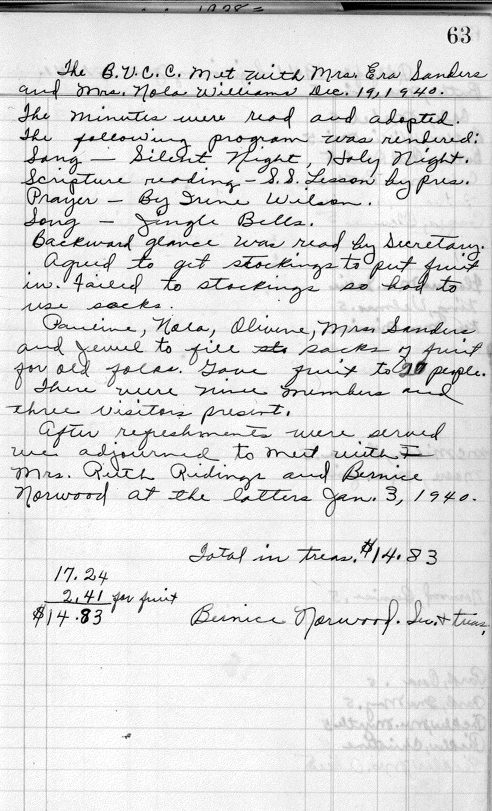 63
The B.V.C.C. met with Mrs. Era Sanders
and Mrs. Nola Williams Dec. 19, 1940.
The minutes were read and adopted.
The following program was rendered:
Song — Silent Night, Holy Night.
Scripture reading — S.S. Lesson by pres.
Prayer — By Irene Wilson.
Song — Jingle Bells.
Backward glance was read by Secretary.
Agreed to get stockings to put fruit
in. Failed to stockings so had to
use sacks.
Pauline, Nola, Olivine, Mrs. Sanders
and Jewel to fill sacks of fruit
for old folks. Gave fruit to 20 people.
There were nine members and
three visitors present.
After refreshments were served
we adjourned to meet with
Mrs. Ruth Ridings and Bernice
Norwood at the latters Jan. 3, 1940.
Total in treas. $14.83
17.24
2.41 for fruit
$14.83
Bernice Norwood. Sec. & treas.